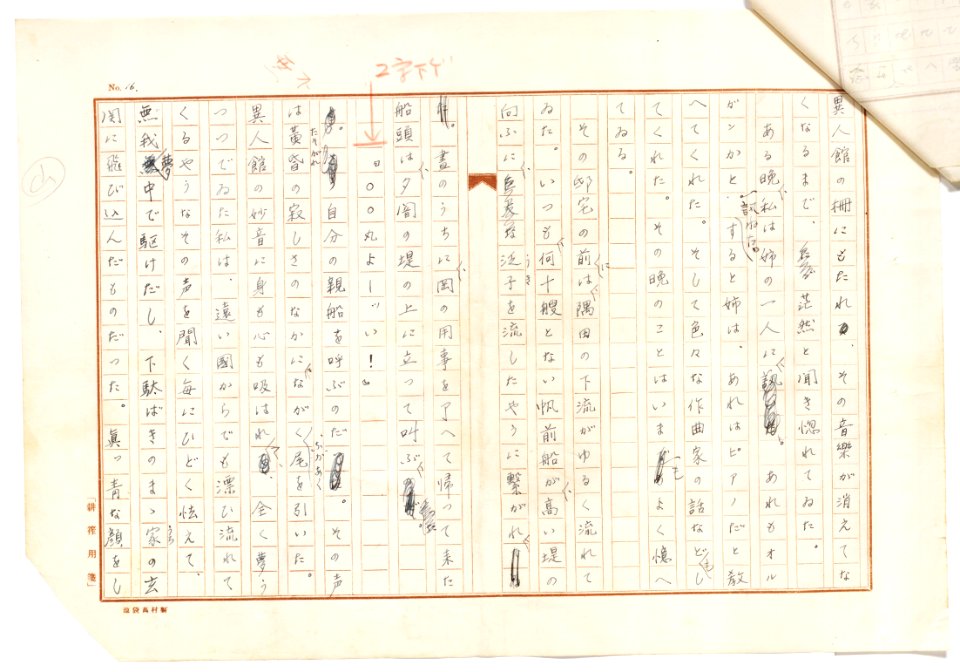 No. 16.
2字下ゲ
異人館の柵にもたれ、その音樂が消えてな
くなるまで、茫然と聞き惚れてゐた。
ある晩、私は姉の一人に訊ねた。あれもオル
ガンかと、すると姉は、あれはピアノだと教
へてくれた。そして色々な作曲家の話などもし
てくれた。その晩のことはいまもうまく憶へ
てゐる。
その邸宅の前には、隅田の下流がゆるく流れて
ゐた。いつも、何十艘とない帆前船が、高い堤の
向ふに浮子を流したやうに繋がれ
、晝のうちに、岡の用事を了へて帰つて来た
船頭は、夕闇の堤の上に立つて叫ぶ、
「〇〇〇丸よーーい！」
自分の親船を呼ぶのだ。その声
は黄昏の寂しさのなかに、ながく尾を引いた。
たそがれ
異人館の妙音に身も心も吸はれ、全く夢う
つつでゐた私は、遠い國からでも漂ひ流れて
くるやうなその声を聞く毎にひどく怯えて、
無我夢中で駆けだし、下駄ばきのまゝ家の玄
関に飛び込んだものだつた。眞っ青な顔をし
「耕程用箋」